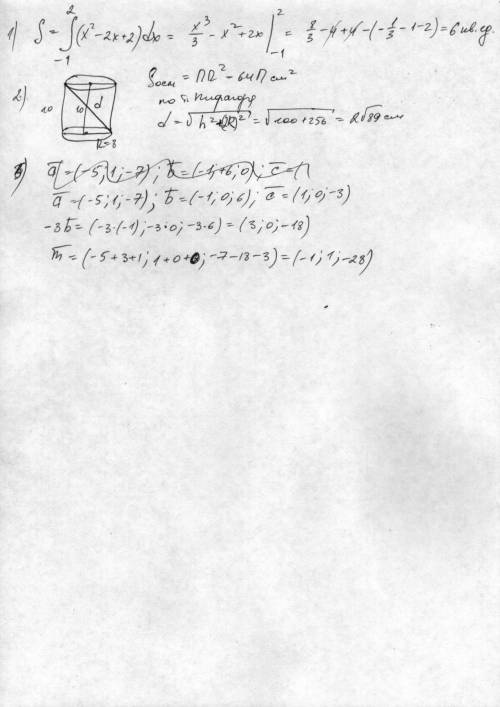 1) S = ∫₋₁² (x² - 2x + 2) dx = x³/3 - x² + 2x |₋₁² = 8/3 - 4 + 4 - (-1/3 - 1 - 2) = 6 кв. ед.
2) Sосн = ПR² - 64П см²
по т. Пифагора
10 10 d d = √(h² + (2R)²) = √(100 + 256) = 2√89 см
R = 8
3) a̅ = (-5; 1; -7); b̅ = (-1; +6; 0); c̅ = (1
a̅ = (-5; 1; -7); b̅ = (-1; 0; 6); c̅ = (1; 0; -3)
-3b̅ = (-3·(-1); -3·0; -3·6) = (3; 0; -18)
m̅ = (-5+3+1; 1+0+0; -7-18-3) = (-1; 1; -28)